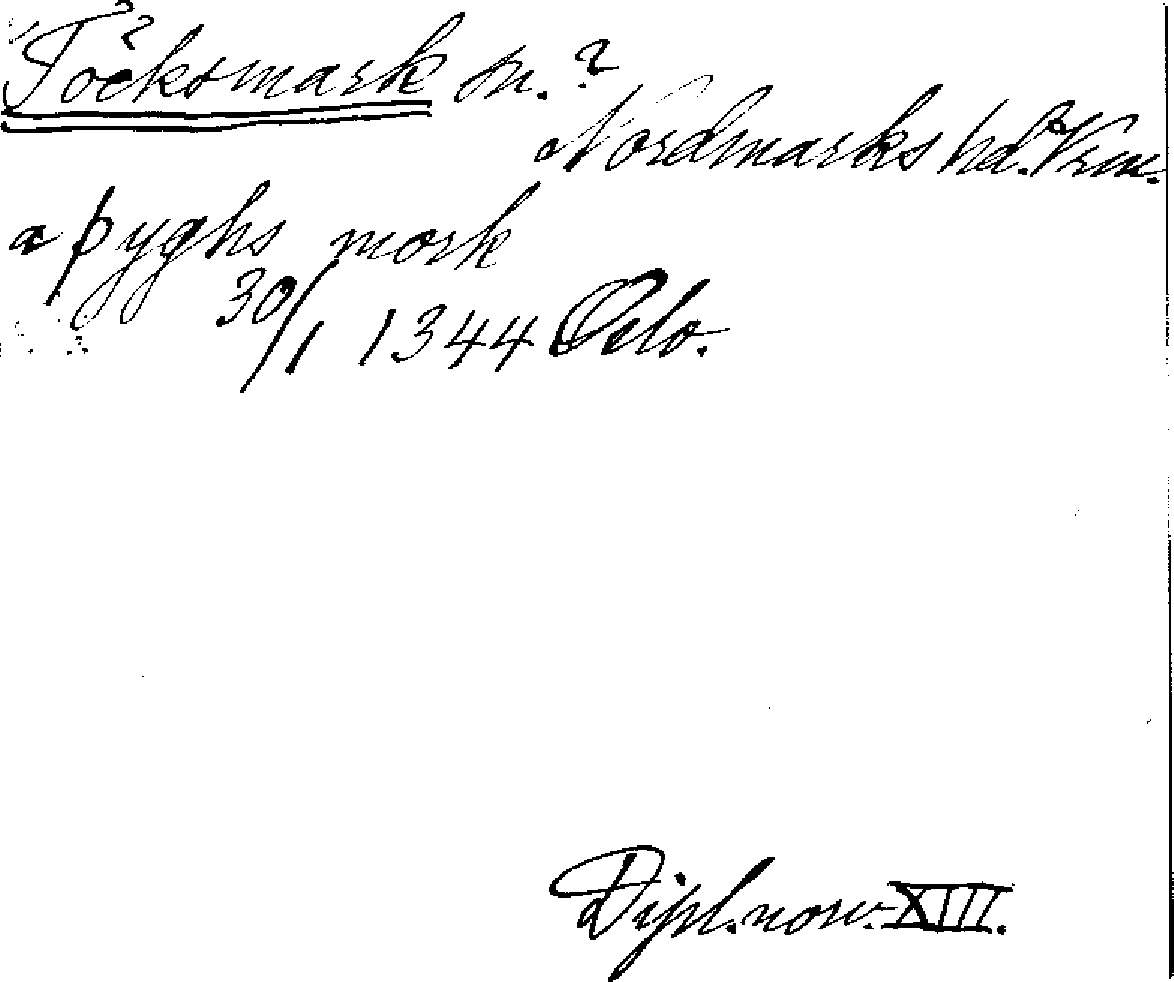 Töcksmark sn. ?
Nordmarks hd. Vrm.
a þyghs mork
30/1 1344 Oslo.
Dipl. norv. XIII.